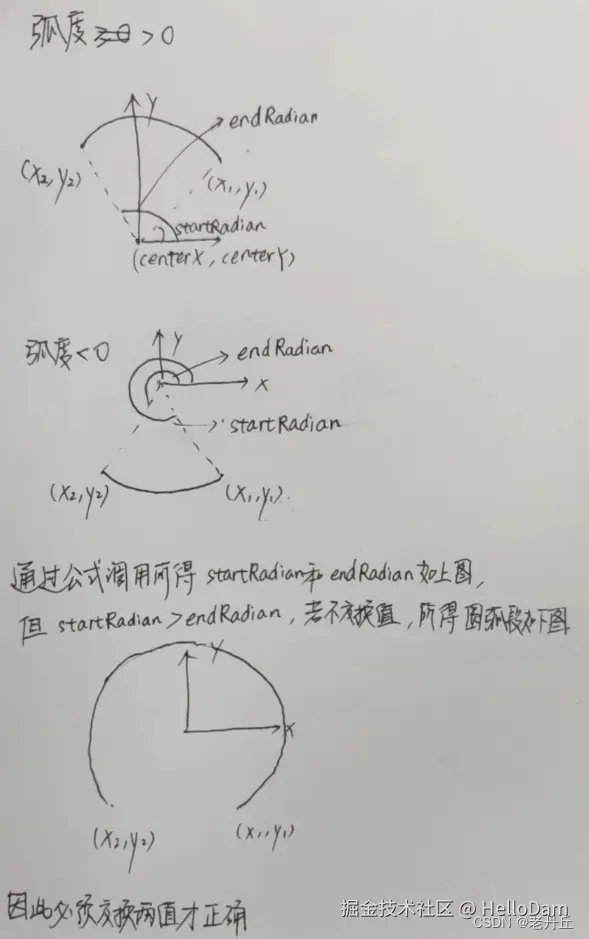 弧度 > 0
Y
endRadian
(x₂,y₂)
(x₁,y₁)
startRadian
(centerX, centerY)
弧度<0
Y
endRadian
x
startRadian
(x₂,y₂)
(x₁,y₁)
通过公式调用所得 startRadian和 endRadian 如上图,
但 startRadian>endRadian, 若不交换值, 所得圆弧段如下图
Y
x
(x₂,y₂)
(x₁,y₁)
因此必须交换两值才正确
掘金技术社区 @ HelloDam
CSDN @老丹丘